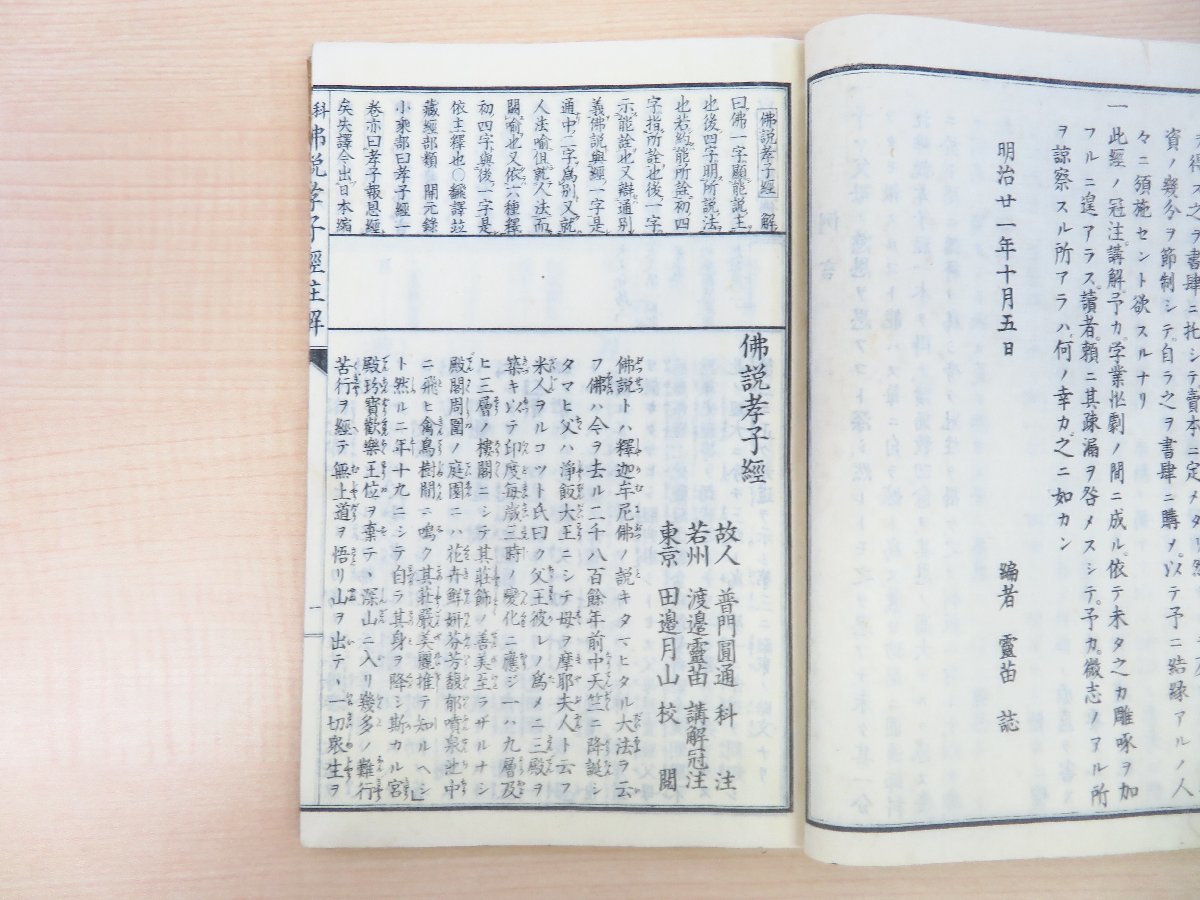 資ノ幾分ヲ節制シテ自ラ之ヲ書肆ニ購メ以テ子ニ結縁アルノ人
々ニ須施セント欲スルナリ
一此經ノ冠注講解予カ学業怱劇ノ間ニ成ル依テ未タ之カ雕啄ヲ加
フルニ遑アラス讀者頼ニ其疎漏ヲ咎メスシテ予カ微志ノアル所
ヲ諒察スル所アラハ何ノ幸カ之ニ如カン
明治廿一年十月五日
編者 靈苗 誌
佛説孝子經 解
曰佛一字顯能説主
也後四字明所説法
也若約能所詮初四
字指所詮也後一字
示能詮也又辯通別
義佛説與經一字是
通中二字爲別又就
人法喩但就人法而
闕喩也又依六種釋
初四字與後一字是
依主釋也〇繙譯玆
藏經部類 開元錄
小乘部曰孝子經一
卷亦曰孝子報恩經
矣失譯今出日本編
佛説孝子經
故人 普門圓通 科 注
若州 渡邉靈苗 講解冠注
東京 田邉月山 校 閲
佛説トハ釋迦牟尼佛ノ説キタマヒタル大法ヲ云
フ佛ハ今ヲ去ル二千八百餘年前中天竺ニ降誕シ
タマヒ父ハ淨飯大王ニシテ母ヲ摩耶夫人ト云フ
米人ヲルコツト氏曰ク父王彼レノ爲メニ三殿ヲ
築キ以テ印度毎歳三時ノ變化ニ應ジ一ハ九層及
ヒ三層ノ樓閣ニシテ其莊飾ノ善美至ラザルナシ
殿閣周圍ノ庭園ニハ花卉鮮妍芬芳馥郁噴泉池中
ニ飛ヒ禽鳥樹間ニ鳴ク其莊嚴美麗推テ知ルヘシ
ト然ルニ年十九ニシテ自ラ其身ヲ降シ斯カル宮
殿珍寶歡樂王位ヲ棄テヽ深山ニ入リ幾多ノ難行
苦行ヲ經テ無上道ヲ悟リ山ヲ出テヽ一切衆生ヲ
科佛説孝子經註解
一